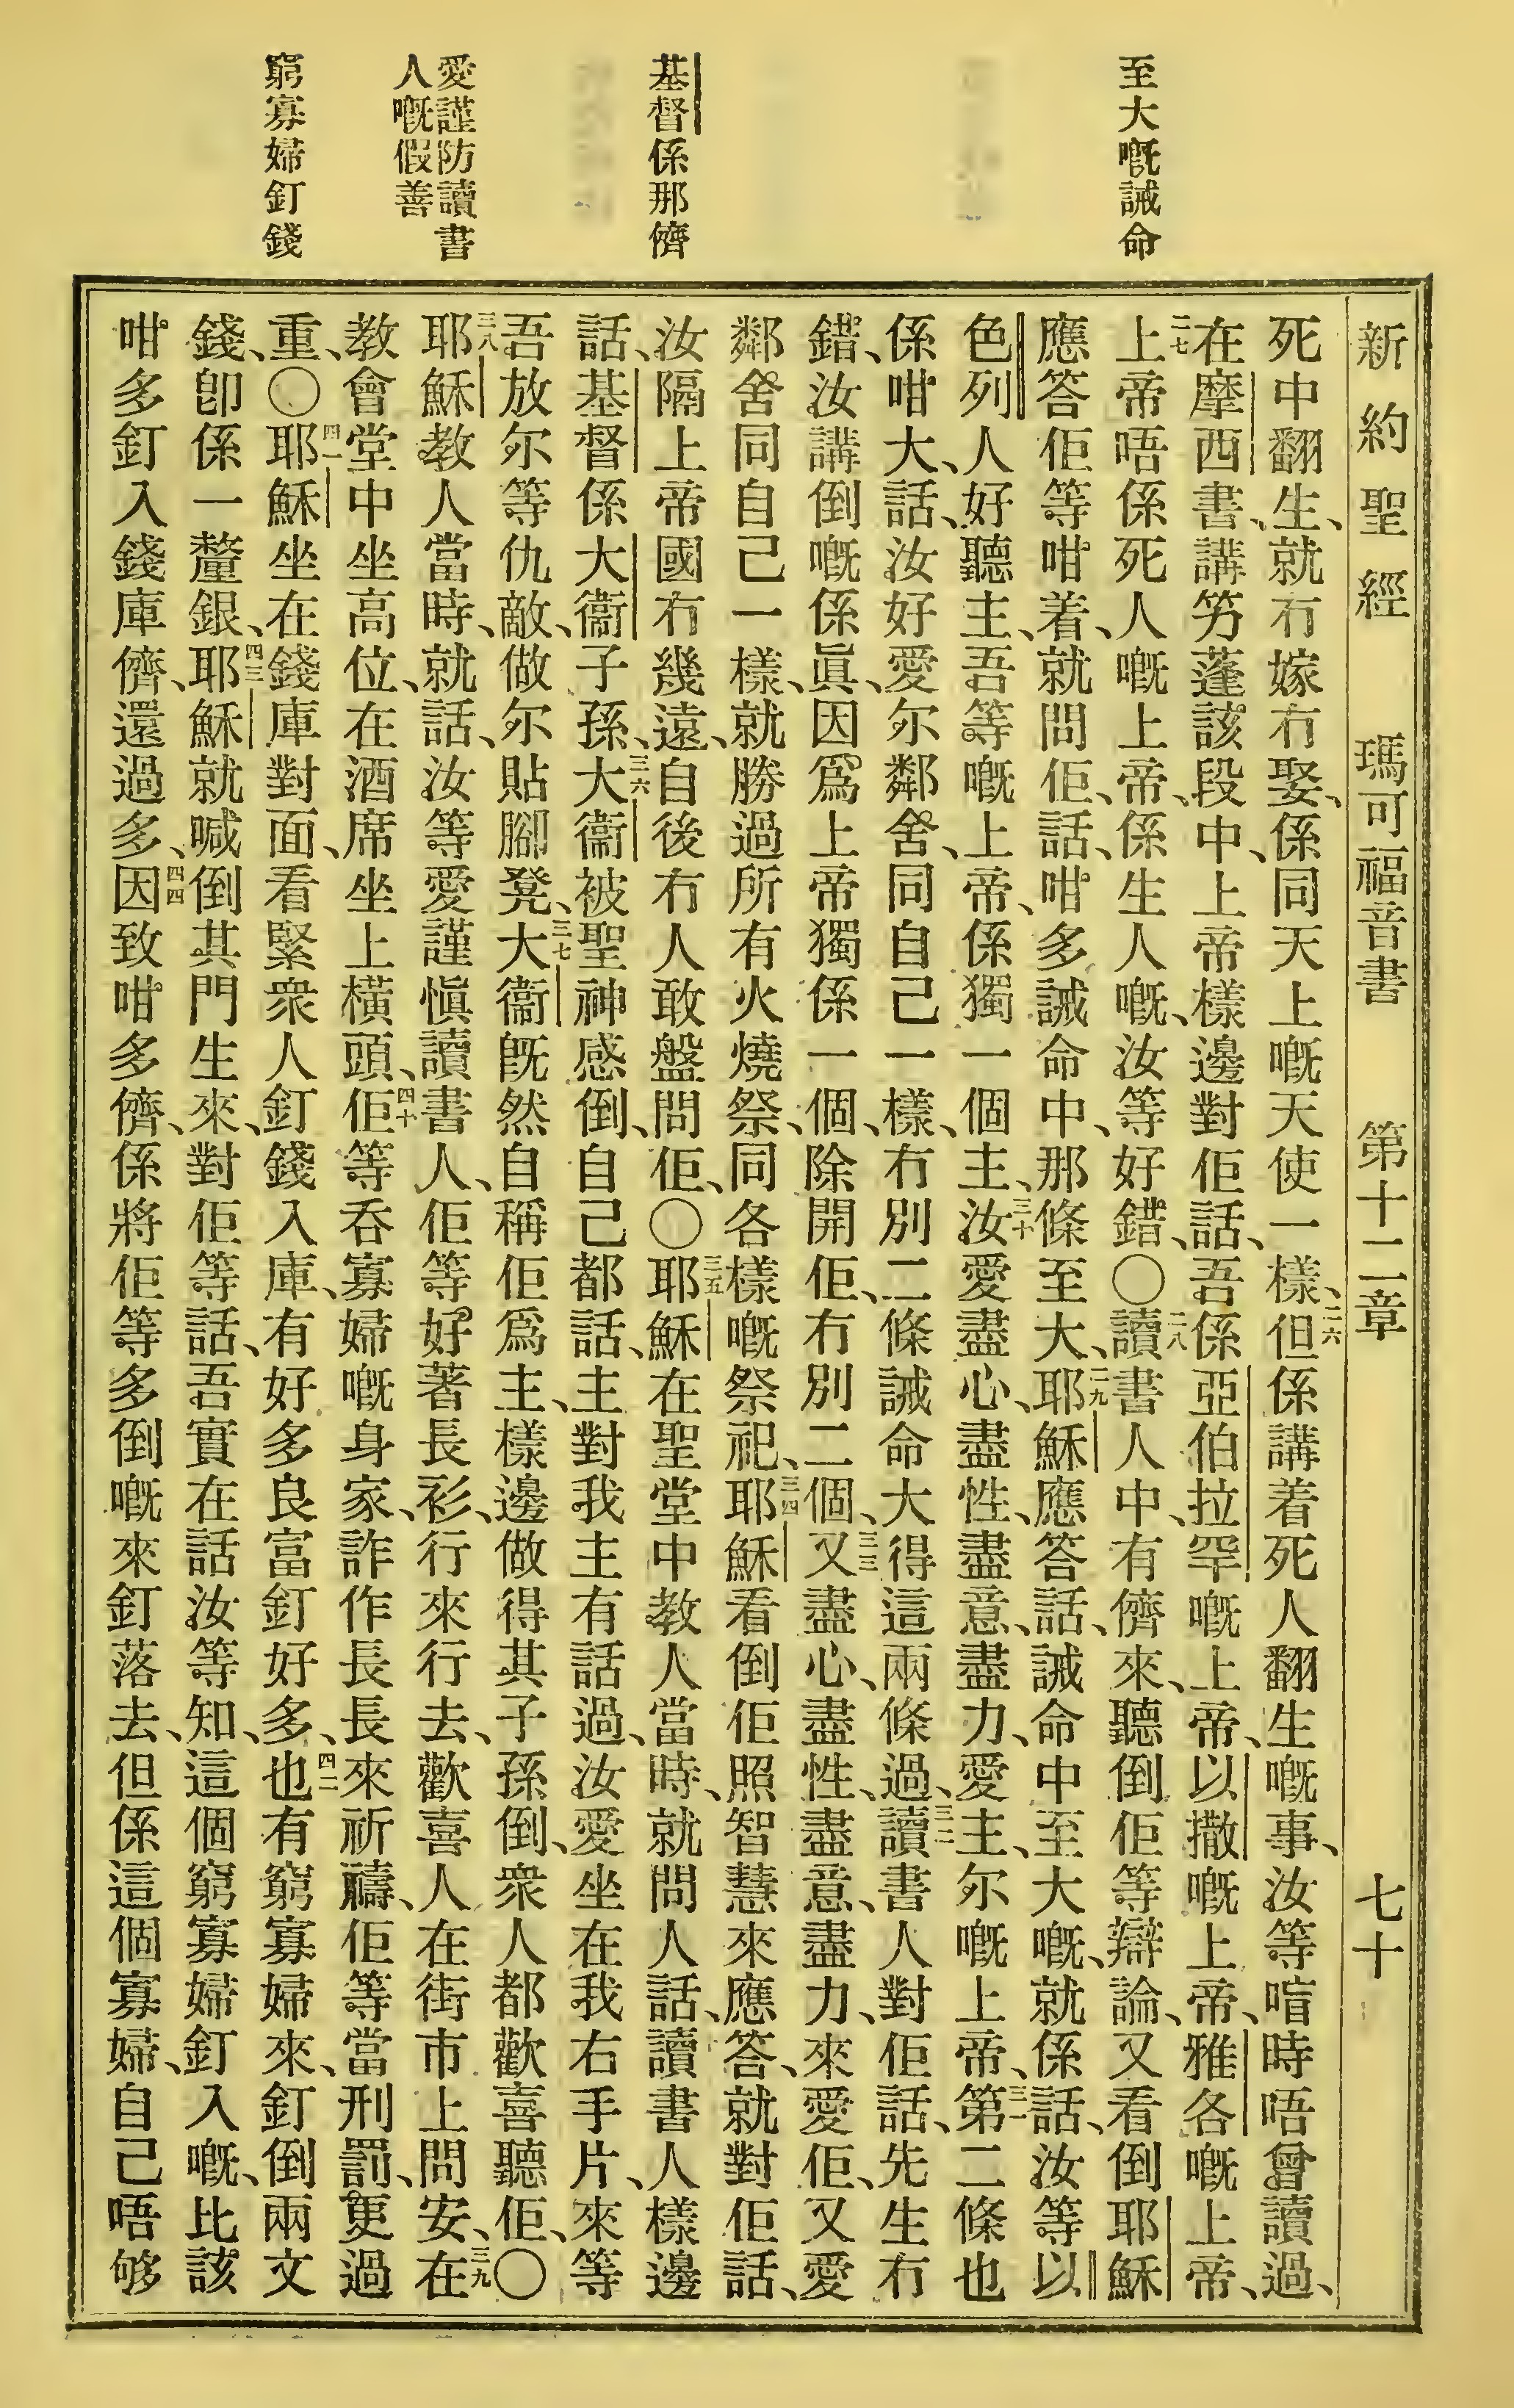 至大嘅誡命
基督係那儕
愛謹防讀書
人嘅假善
窮寡婦釘錢
新約聖經 瑪可福音書 第十二章 七十
死中翻生、就冇嫁冇娶、係同天上嘅天使一樣、二六但係講着死人翻生嘅事、汝等喑時唔曾讀過、
在摩西書、講竻蓬該段中、上帝樣邊對佢話、吾係亞伯拉罕嘅上帝、以撒嘅上帝、雅各嘅上帝、
二七上帝唔係死人嘅上帝、係生人嘅、汝等好錯、〇二八讀書人中、有儕來、聽倒佢等辯論、又看倒耶穌
應答佢等咁着、就問佢、話、咁多誡命中、那條至大、二九耶穌應答話、誡命中至大嘅、就係話、汝等以
色列人好聽、主、吾等嘅上帝、係獨一個主、三十汝愛盡心、盡性、盡意、盡力、愛主、尔嘅上帝、三一第二條也
係咁大、話、汝好愛尔鄰舍、同自己一樣、冇別二條誡命大得這兩條過、三二讀書人對佢話、先生冇
錯、汝講倒嘅係眞、因爲上帝獨係一個、除開佢、冇別二個、三三又盡心、盡性、盡意、盡力、來愛佢、又愛
鄰舍同自己一樣、就勝過所有火燒祭、同各樣嘅祭祀、三四耶穌看倒佢照智慧來應答、就對佢話、
汝隔上帝國冇幾遠、自後冇人敢盤問佢、〇三五耶穌在聖堂中教人當時、就問人話、讀書人樣邊
話、基督係大衞子孫、三六大衞被聖神感倒、自己都話、主對我主有話過、汝愛坐在我右手片、來等
吾放尔等仇敵、做尔貼腳凳、三七大衞旣然自稱佢爲主、樣邊做得其子孫倒、衆人都歡喜聽佢、〇
三八耶穌教人當時、就話、汝等愛謹愼讀書人、佢等好著長衫、行來行去、歡喜人在街市上問安、三九在
教會堂中坐高位、在酒席坐上橫頭、四十佢等吞寡婦嘅身家、詐作長長來祈禱、佢等當刑罰、更過
重、〇四一耶穌坐在錢庫對面、看緊衆人釘錢入庫、有好多良富釘好多、四二也有窮寡婦來、釘倒兩文
錢、卽係一釐銀、四三耶穌就喊倒其門生來、對佢等話、吾實在話汝等知、這個窮寡婦釘入嘅、比該
咁多釘入錢庫儕、還過多、四四因致咁多儕、係將佢等多倒嘅來釘落去、但係這個寡婦、自己唔够